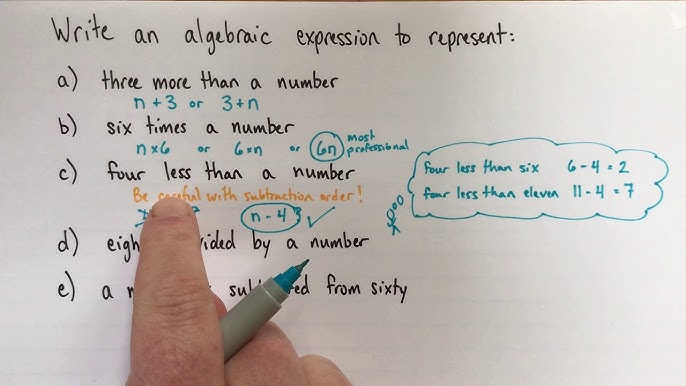 Write an algebraic expression to represent:
a) three more than a number
n + 3 or 3 + n
b) six times a number
n × 6 or 6 × n or 6n most professional
c) four less than a number
Be careful with subtraction order!
n - 4 ✓
four less than six 6 - 4 = 2
four less than eleven 11 - 4 = 7
d) by a number
e) a from sixty